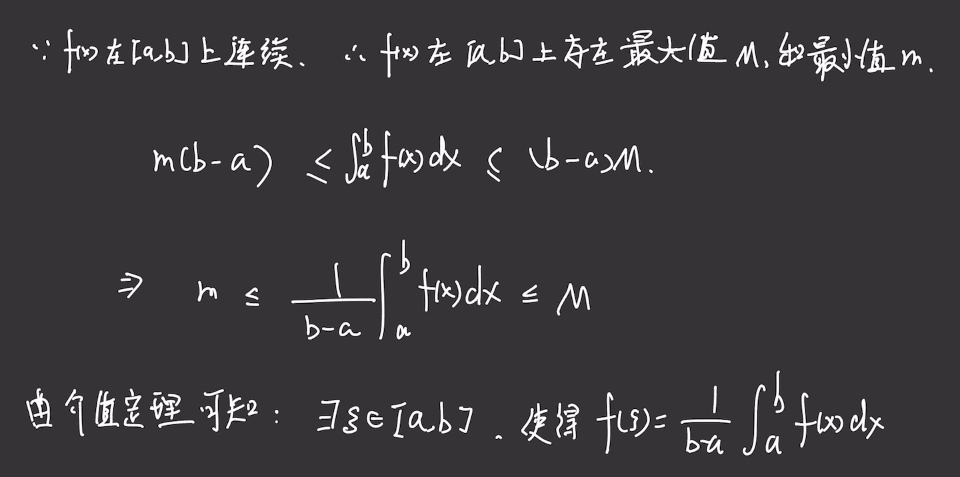 ∵ f(x)在[a,b]上连续. ∴ f(x)在[a,b]上存在最大值M,和最小值m.
m(b-a) ≤ ∫_a^b f(x)dx ≤ (b-a)M.
⇒ m ≤ \frac{1}{b-a} ∫_a^b f(x)dx ≤ M
由介值定理可知: ∃ξ∈[a,b]. 使得 f(ξ)= \frac{1}{b-a} ∫_a^b f(x)dx